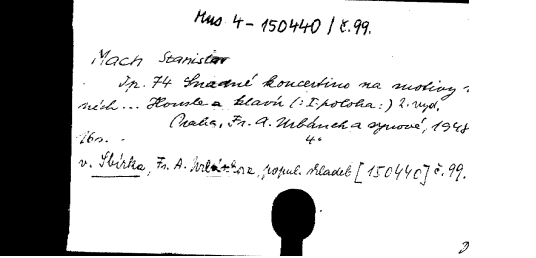 Mus 4-150440/č.99.
Mach Stanislav
Op. 74 Snadné koncertino na motivy
ních... Housle a klavír (:I. poloha:) 2. vyd.
Praha, Fr. A. Urbánek a synové, 1948
16s. 4°
v. Sbírka, Fr. A. Urbánkova, popul. skladeb [150440] č.99.